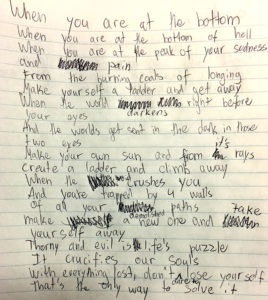 When you are at the bottom
When you are at the bottom of hell
When you are at the peak of your sadness
and pain
From the burning coals of longing
Make yourself a ladder and get away
When the world darkens right before
your eyes
And the worlds get sent in the dark in those
two eyes
Make your own sun and from it's rays
Create a ladder and climb away
When the crushes you
And you're trapped by 4 walls
Of all your demolished paths take
make a new one and
yourself away
Thorny and evil is life's puzzle
It crucifies our souls
With everything lost, don't lose yourself
That's the only way to solve it